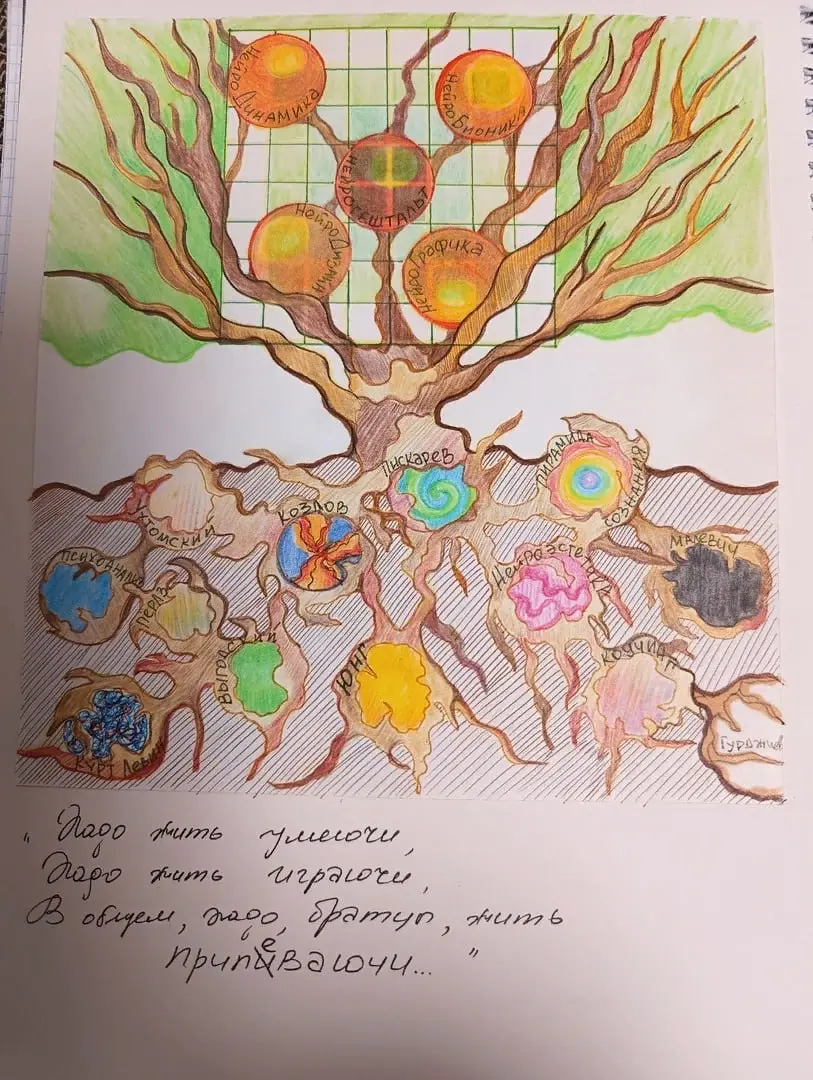 Нейро Динамика
НейроБионика
НЕЙРОГЕШТАЛЬТ
НейроДизайн
НейроГрафика
Пискарев
ПИРАМИДА СОЗНАНИЯ
УХТОМСКИЙ
КОЗЛОВ
МАЛЕВИЧ
ПСИХОАНАЛИЗ
Перлз
НейроЭстетика
ВЫГОТСКИЙ
ЮНГ
КОУЧИНГ
КУРТ Левин
Гурджиев
„Надо жить умеючи,
Надо жить играючи,
В общем, надо, братцы, жить
припеваючи..."